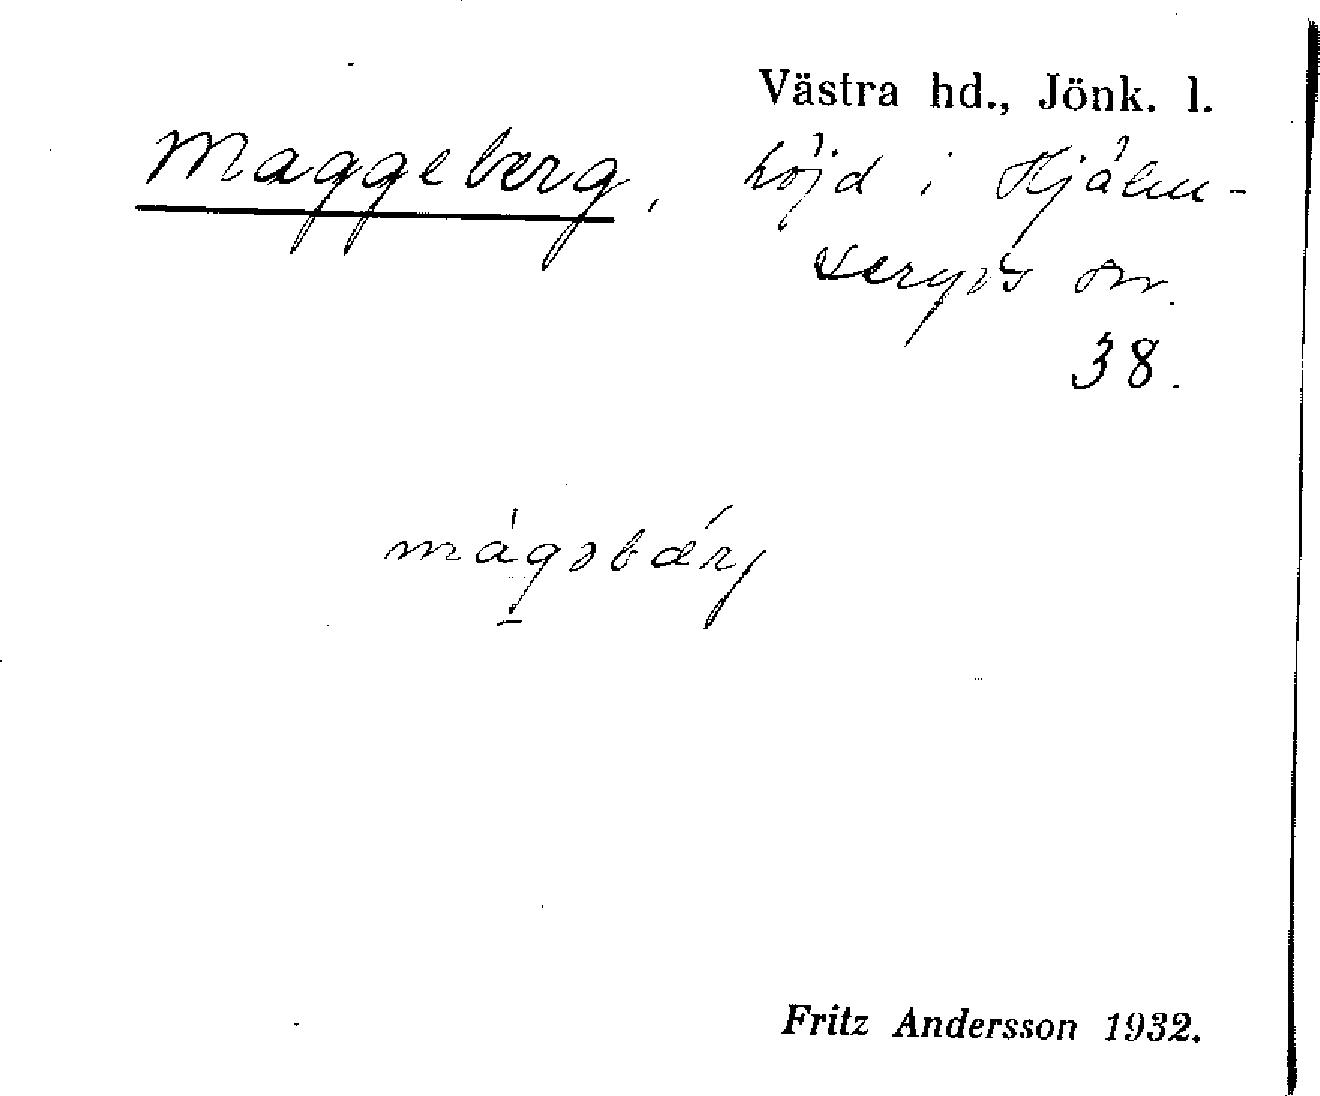 Västra hd., Jönk. l.
Maggeberg, höjd i Hjälm-
seryds sn.
38.
mágəbærj
Fritz Andersson 1932.